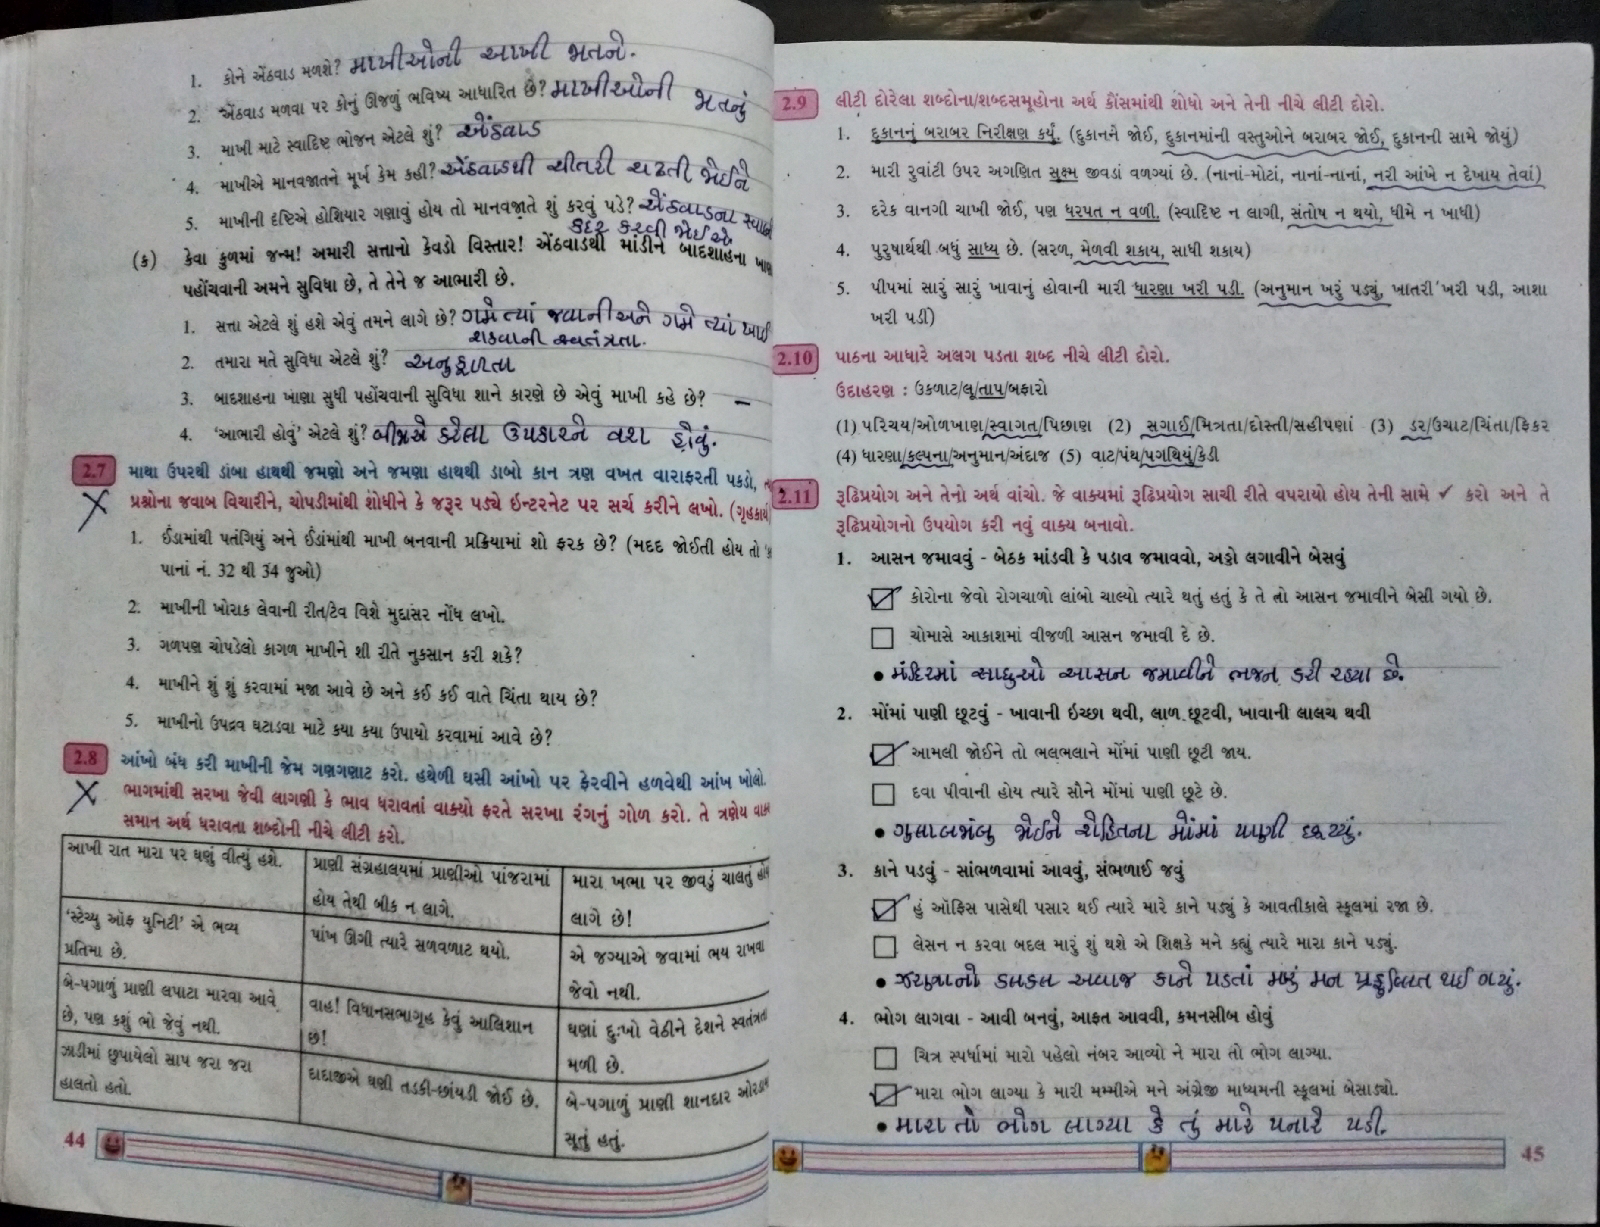 1. કોને એંઠવાડ મળશે? માખીઓની આખી જાતને.
2. એંઠવાડ મળવા પર કોનું ઊજળું ભવિષ્ય આધારિત છે? માખીઓની જાતનું
3. માખી માટે સ્વાદિષ્ટ ભોજન એટલે શું? એંઠવાડ
4. માખીએ માનવજાતને મૂર્ખ કેમ કહી? એંઠવાડથી ચીતરી ચઢતી જોઈને
5. માખીની દૃષ્ટિએ હોશિયાર ગણાવું હોય તો માનવજાતે શું કરવું પડે? એંઠવાડના
કદર કરવી જોઈએ.
(ક) કેવા કુળમાં જન્મ! અમારી સત્તાનો કેવડો વિસ્તાર! એંઠવાડથી માંડીને બાદશાહના
પહોંચવાની અમને સુવિધા છે, તે તેને જ આભારી છે.
1. સત્તા એટલે શું હશે એવું તમને લાગે છે? ગમે ત્યાં જવાની અને ગમે ત્યાં ખાઈ
શકવાની સ્વતંત્રતા.
2. તમારા મતે સુવિધા એટલે શું? અનુકૂળતા
3. બાદશાહના ખાણા સુધી પહોંચવાની સુવિધા શાને કારણે છે એવું માખી કહે છે? –
4. 'આભારી હોવું' એટલે શું? બીજાએ કરેલા ઉપકારને વશ હોવું.
2.7 માથા ઉપરથી ડાબા હાથથી જમણો અને જમણા હાથથી ડાબો કાન ત્રણ વખત વારાફરતી પકડો,
પ્રશ્નોના જવાબ વિચારીને, ચોપડીમાંથી શોધીને કે જરૂર પડ્યે ઇન્ટરનેટ પર સર્ચ કરીને લખો. (ગૃહકાર્ય)
1. ઈંડામાંથી પતંગિયું અને ઈંડાંમાંથી માખી બનવાની પ્રક્રિયામાં શો ફરક છે? (મદદ જોઈતી હોય તો
પાનાં નં. 32 થી 34 જુઓ)
2. માખીની ખોરાક લેવાની રીત/ટેવ વિશે મુદ્દાસર નોંધ લખો.
3. ગળપણ ચોપડેલો કાગળ માખીને શી રીતે નુકસાન કરી શકે?
4. માખીને શું શું કરવામાં મજા આવે છે અને કઈ કઈ વાતે ચિંતા થાય છે?
5. માખીનો ઉપદ્રવ ઘટાડવા માટે કયા કયા ઉપાયો કરવામાં આવે છે?
2.8 આંખો બંધ કરી માખીની જેમ ગણગણાટ કરો. હથેળી ઘસી આંખો પર ફેરવીને હળવેથી આંખ ખોલો.
ભાગમાંથી સરખા જેવી લાગણી કે ભાવ ધરાવતાં વાક્યો ફરતે સરખા રંગનું ગોળ કરો. તે ત્રણેય
સમાન અર્થ ધરાવતા શબ્દોની નીચે લીટી કરો.
આખી રાત મારા પર ઘણું વીત્યું હશે.
પ્રાણી સંગ્રહાલયમાં પ્રાણીઓ પાંજરામાં
હોય તેથી બીક ન લાગે.
મારા ખભા પર જીવડું ચાલતું
લાગે છે!
'સ્ટેચ્યુ ઑફ યુનિટી' એ ભવ્ય
પ્રતિમા છે.
પાંખ ઊગી ત્યારે સળવળાટ થયો.
એ જગ્યાએ જવામાં ભય રાખવા
જેવો નથી.
બે-પગાળું પ્રાણી લપાટા મારવા આવે
છે, પણ કશું ભો જેવું નથી.
વાહ! વિધાનસભાગૃહ કેવું આલિશાન
છે!
ઘણાં દુઃખો વેઠીને દેશને સ્વતંત્રતા
મળી છે.
ઝાડીમાં છુપાયેલો સાપ જરા જરા
હાલતો હતો.
દાદાજીએ ઘણી તડકી-છાંયડી જોઈ છે.
બે-પગાળું પ્રાણી શાનદાર
સૂતું હતું.
44
2.9 લીટી દોરેલા શબ્દોના/શબ્દસમૂહોના અર્થ કૌંસમાંથી શોધો અને તેની નીચે લીટી દોરો.
1. દુકાનનું બરાબર નિરીક્ષણ કર્યું. (દુકાનને જોઈ, દુકાનમાંની વસ્તુઓને બરાબર જોઈ, દુકાનની સામે જોયું)
2. મારી રુવાંટી ઉપર અગણિત સૂક્ષ્મ જીવડાં વળગ્યાં છે. (નાનાં-મોટાં, નાનાં-નાનાં, નરી આંખે ન દેખાય તેવાં)
3. દરેક વાનગી ચાખી જોઈ, પણ ધરપત ન વળી. (સ્વાદિષ્ટ ન લાગી, સંતોષ ન થયો, ધીમે ન ખાધી)
4. પુરુષાર્થથી બધું સાધ્ય છે. (સરળ, મેળવી શકાય, સાધી શકાય)
5. પીપમાં સારું સારું ખાવાનું હોવાની મારી ધારણા ખરી પડી. (અનુમાન ખરું પડ્યું, ખાતરી ખરી પડી, આશા
ખરી પડી)
2.10 પાઠના આધારે અલગ પડતા શબ્દ નીચે લીટી દોરો.
ઉદાહરણ : ઉકળાટ/લૂ/તાપ/બફારો
(1) પરિચય/ઓળખાણ/સ્વાગત/પિછાણ (2) સગાઈ/મિત્રતા/દોસ્તી/સહીપણાં (3) ડર/ઉચાટ/ચિંતા/ફિકર
(4) ધારણા/કલ્પના/અનુમાન/અંદાજ (5) વાટ/પંથ/પગથિયું/કેડી
2.11 રૂઢિપ્રયોગ અને તેનો અર્થ વાંચો. જે વાક્યમાં રૂઢિપ્રયોગ સાચી રીતે વપરાયો હોય તેની સામે ✓ કરો અને તે
રૂઢિપ્રયોગનો ઉપયોગ કરી નવું વાક્ય બનાવો.
1. આસન જમાવવું - બેઠક માંડવી કે પડાવ જમાવવો, અડ્ડો લગાવીને બેસવું
કોરોના જેવો રોગચાળો લાંબો ચાલ્યો ત્યારે થતું હતું કે તે તો આસન જમાવીને બેસી ગયો છે.
ચોમાસે આકાશમાં વીજળી આસન જમાવી દે છે.
• મંદિરમાં સાધુઓ આસન જમાવીને ભજન કરી રહ્યા છે.
2. મોંમાં પાણી છૂટવું - ખાવાની ઇચ્છા થવી, લાળ છૂટવી, ખાવાની લાલચ થવી
આમલી જોઈને તો ભલભલાને મોંમાં પાણી છૂટી જાય.
દવા પીવાની હોય ત્યારે સૌને મોંમાં પાણી છૂટે છે.
• ગુલાબજાંબુ જોઈને રોહિતના મોંમાં પાણી છૂટ્યું.
3. કાને પડવું - સાંભળવામાં આવવું, સંભળાઈ જવું
હું ઑફિસ પાસેથી પસાર થઈ ત્યારે મારે કાને પડ્યું કે આવતીકાલે સ્કૂલમાં રજા છે.
લેસન ન કરવા બદલ મારું શું થશે એ શિક્ષકે મને કહ્યું ત્યારે મારા કાને પડ્યું.
• ઝરણાનો કલકલ અવાજ કાને પડતાં મારું મન પ્રફુલ્લિત થઈ ગયું.
4. ભોગ લાગવા - આવી બનવું, આફત આવવી, કમનસીબ હોવું
ચિત્ર સ્પર્ધામાં મારો પહેલો નંબર આવ્યો ને મારા તો ભોગ લાગ્યા.
મારા ભોગ લાગ્યા કે મારી મમ્મીએ મને અંગ્રેજી માધ્યમની સ્કૂલમાં બેસાડ્યો.
• મારા તો ભોગ લાગ્યા કે તું મારે પનારે પડી.
45